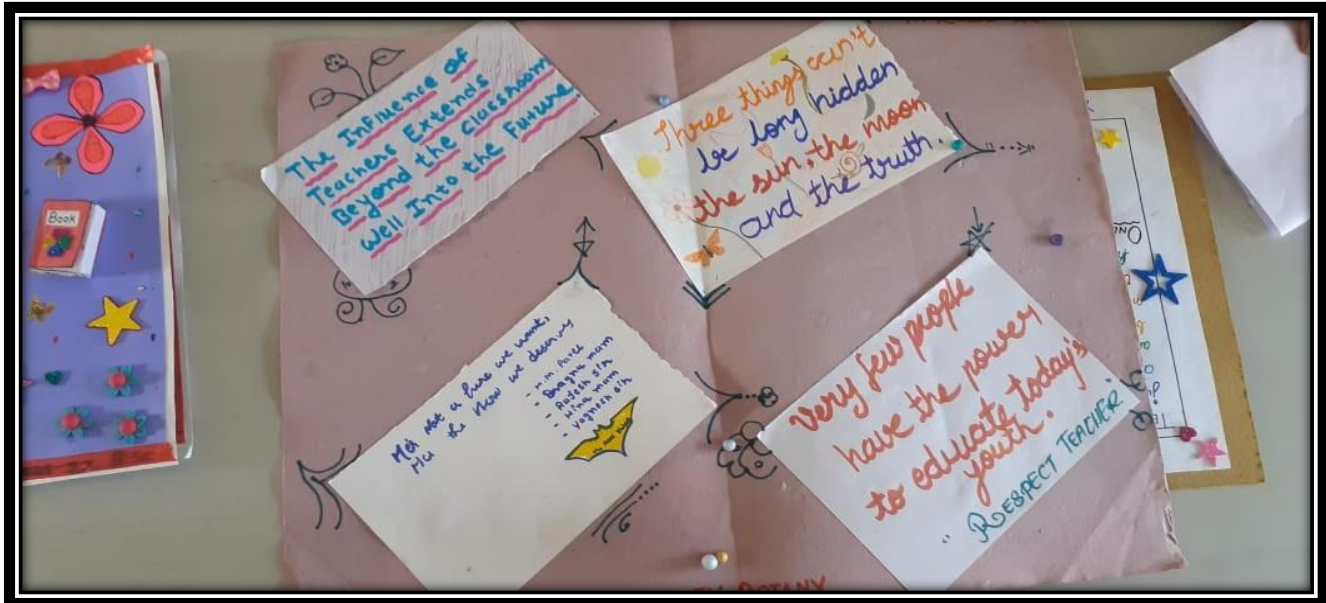 The Influence of
Teachers Extends
Beyond the Classroom
Well Into the Future.
Three things can't
be long hidden
the sun, the moon
and the truth.
Book
He's not a hero we want,
the hero we deserve
- H.M Patel
- Pragna mam
- Rajesh sir
- Hina mam
- Vagnesh sir
very few people
have the power
to eduate today's
youth.
"RESPECT TEACHER"
BOTANY